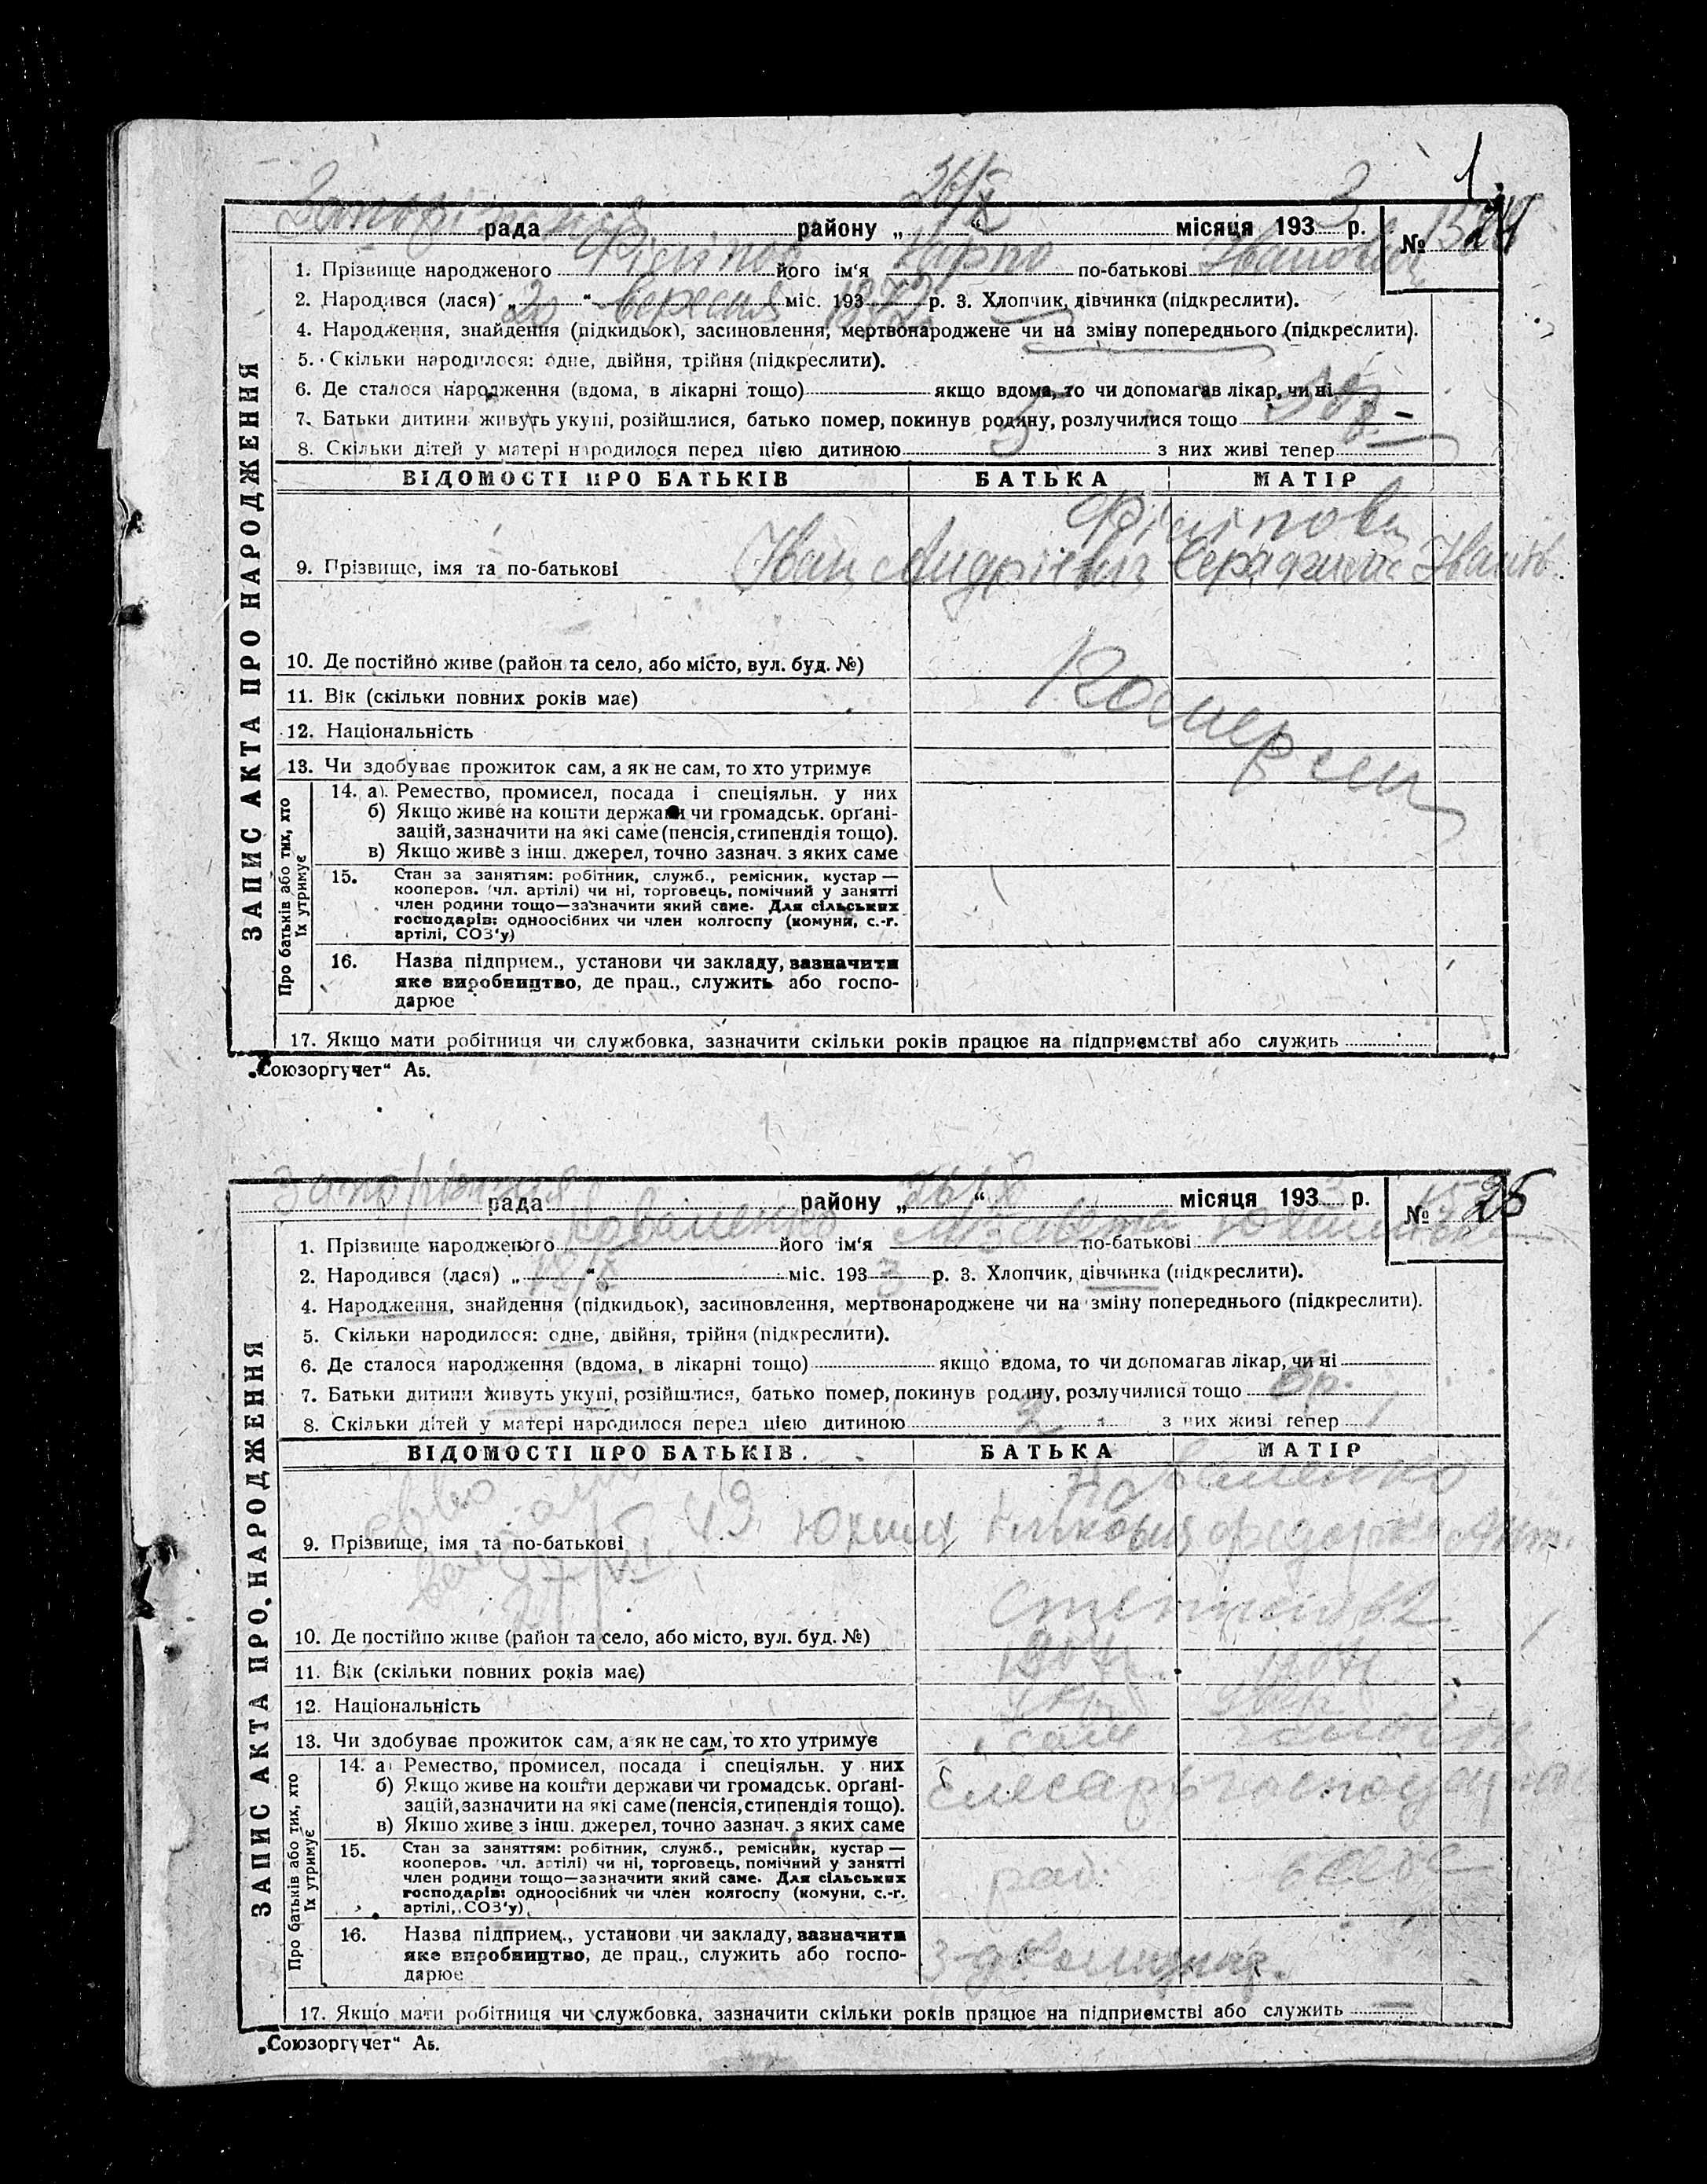 1.
Запорізька рада району „ 26/X “ місяця 1933 р. № 24
1. Прізвище народженого Філіпов його ім'я Карпо по-батькові Іванович
2. Народився (лася) „20“ вересня міс. 193 р. 3. Хлопчик, дівчинка (підкреслити).
4. Народження, знайдення (підкидьок), засиновлення, мертвонароджене чи на зміну попереднього (підкреслити).
5. Скільки народилося: одне, двійня, трійня (підкреслити).
6. Де сталося народження (вдома, в лікарні тощо) якщо вдома, то чи допомагав лікар, чи ні
7. Батьки дитини живуть укупі, розійшлися, батько помер, покинув родину, розлучилися тощо
8. Скільки дітей у матері народилося перед цією дитиною з них живі тепер
ЗАПИС АКТА ПРО НАРОДЖЕННЯ
ВІДОМОСТІ ПРО БАТЬКІВ БАТЬКА МАТІР
Філіпови
9. Прізвище, імя та по-батькові Іван Андрієвич Серафима Іванів.
10. Де постійно живе (район та село, або місто, вул. буд. №)
11. Вік (скільки повних років має)
12. Національність
13. Чи здобуває прожиток сам, а як не сам, то хто утримує
Про батьків або тих, хто їх утримує
14. а) Ремество, промисел, посада і спеціяльн. у них
б) Якщо живе на кошти держави чи громадськ. орґані-
зацій, зазначити на які саме (пенсія, стипендія тощо).
в) Якщо живе з інш. джерел, точно зазнач. з яких саме
15. Стан за заняттям: робітник, служб., ремісник, кустар —
кооперов. (чл. артілі) чи ні, торговець, помічний у занятті
член родини тощо—зазначити який саме. Для сільських
господарів: одноосібних чи член колгоспу (комуни, с.-г.
артілі, СОЗ'у)
16. Назва підприєм., установи чи закладу, зазначити
яке виробництво, де прац., служить або госпо-
дарює
17. Якщо мати робітниця чи службовка, зазначити скільки років працює на підприємстві або служить
„Союзоргучет“ А5.
Запорізька рада району „ 26/X “ місяця 1933 р. № 25
1. Прізвище народженого Коваленко його ім'я Лізавета по-батькові
2. Народився (лася) „ “ міс. 1933 р. 3. Хлопчик, дівчинка (підкреслити).
4. Народження, знайдення (підкидьок), засиновлення, мертвонароджене чи на зміну попереднього (підкреслити).
5. Скільки народилося: одне, двійня, трійня (підкреслити).
6. Де сталося народження (вдома, в лікарні тощо) якщо вдома, то чи допомагав лікар, чи ні
7. Батьки дитини живуть укупі, розійшлися, батько помер, покинув родину, розлучилися тощо
8. Скільки дітей у матері народилося перед цією дитиною 2 з них живі тепер 1
ЗАПИС АКТА ПРО НАРОДЖЕННЯ
ВІДОМОСТІ ПРО БАТЬКІВ БАТЬКА МАТІР
Коваленко
9. Прізвище, імя та по-батькові Юхим
10. Де постійно живе (район та село, або місто, вул. буд. №)
11. Вік (скільки повних років має)
12. Національність Укр Укр
13. Чи здобуває прожиток сам, а як не сам, то хто утримує сам
Про батьків або тих, хто їх утримує
14. а) Ремество, промисел, посада і спеціяльн. у них
б) Якщо живе на кошти держави чи громадськ. орґані-
зацій, зазначити на які саме (пенсія, стипендія тощо).
в) Якщо живе з інш. джерел, точно зазнач. з яких саме
слесарь
15. Стан за заняттям: робітник, служб., ремісник, кустар —
кооперов. чл. артілі) чи ні, торговець, помічний у занятті
член родини тощо—зазначити який саме. Для сільських
господарів: одноосібник чи член колгоспу (комуни, с.-г.
артілі, СОЗ'у)
роб.
16. Назва підприєм., установи чи закладу, зазначити
яке виробництво, де прац., служить або госпо-
дарює
17. Якщо мати робітниця чи службовка, зазначити скільки років працює на підприємстві або служить —
„Союзоргучет“ А5.